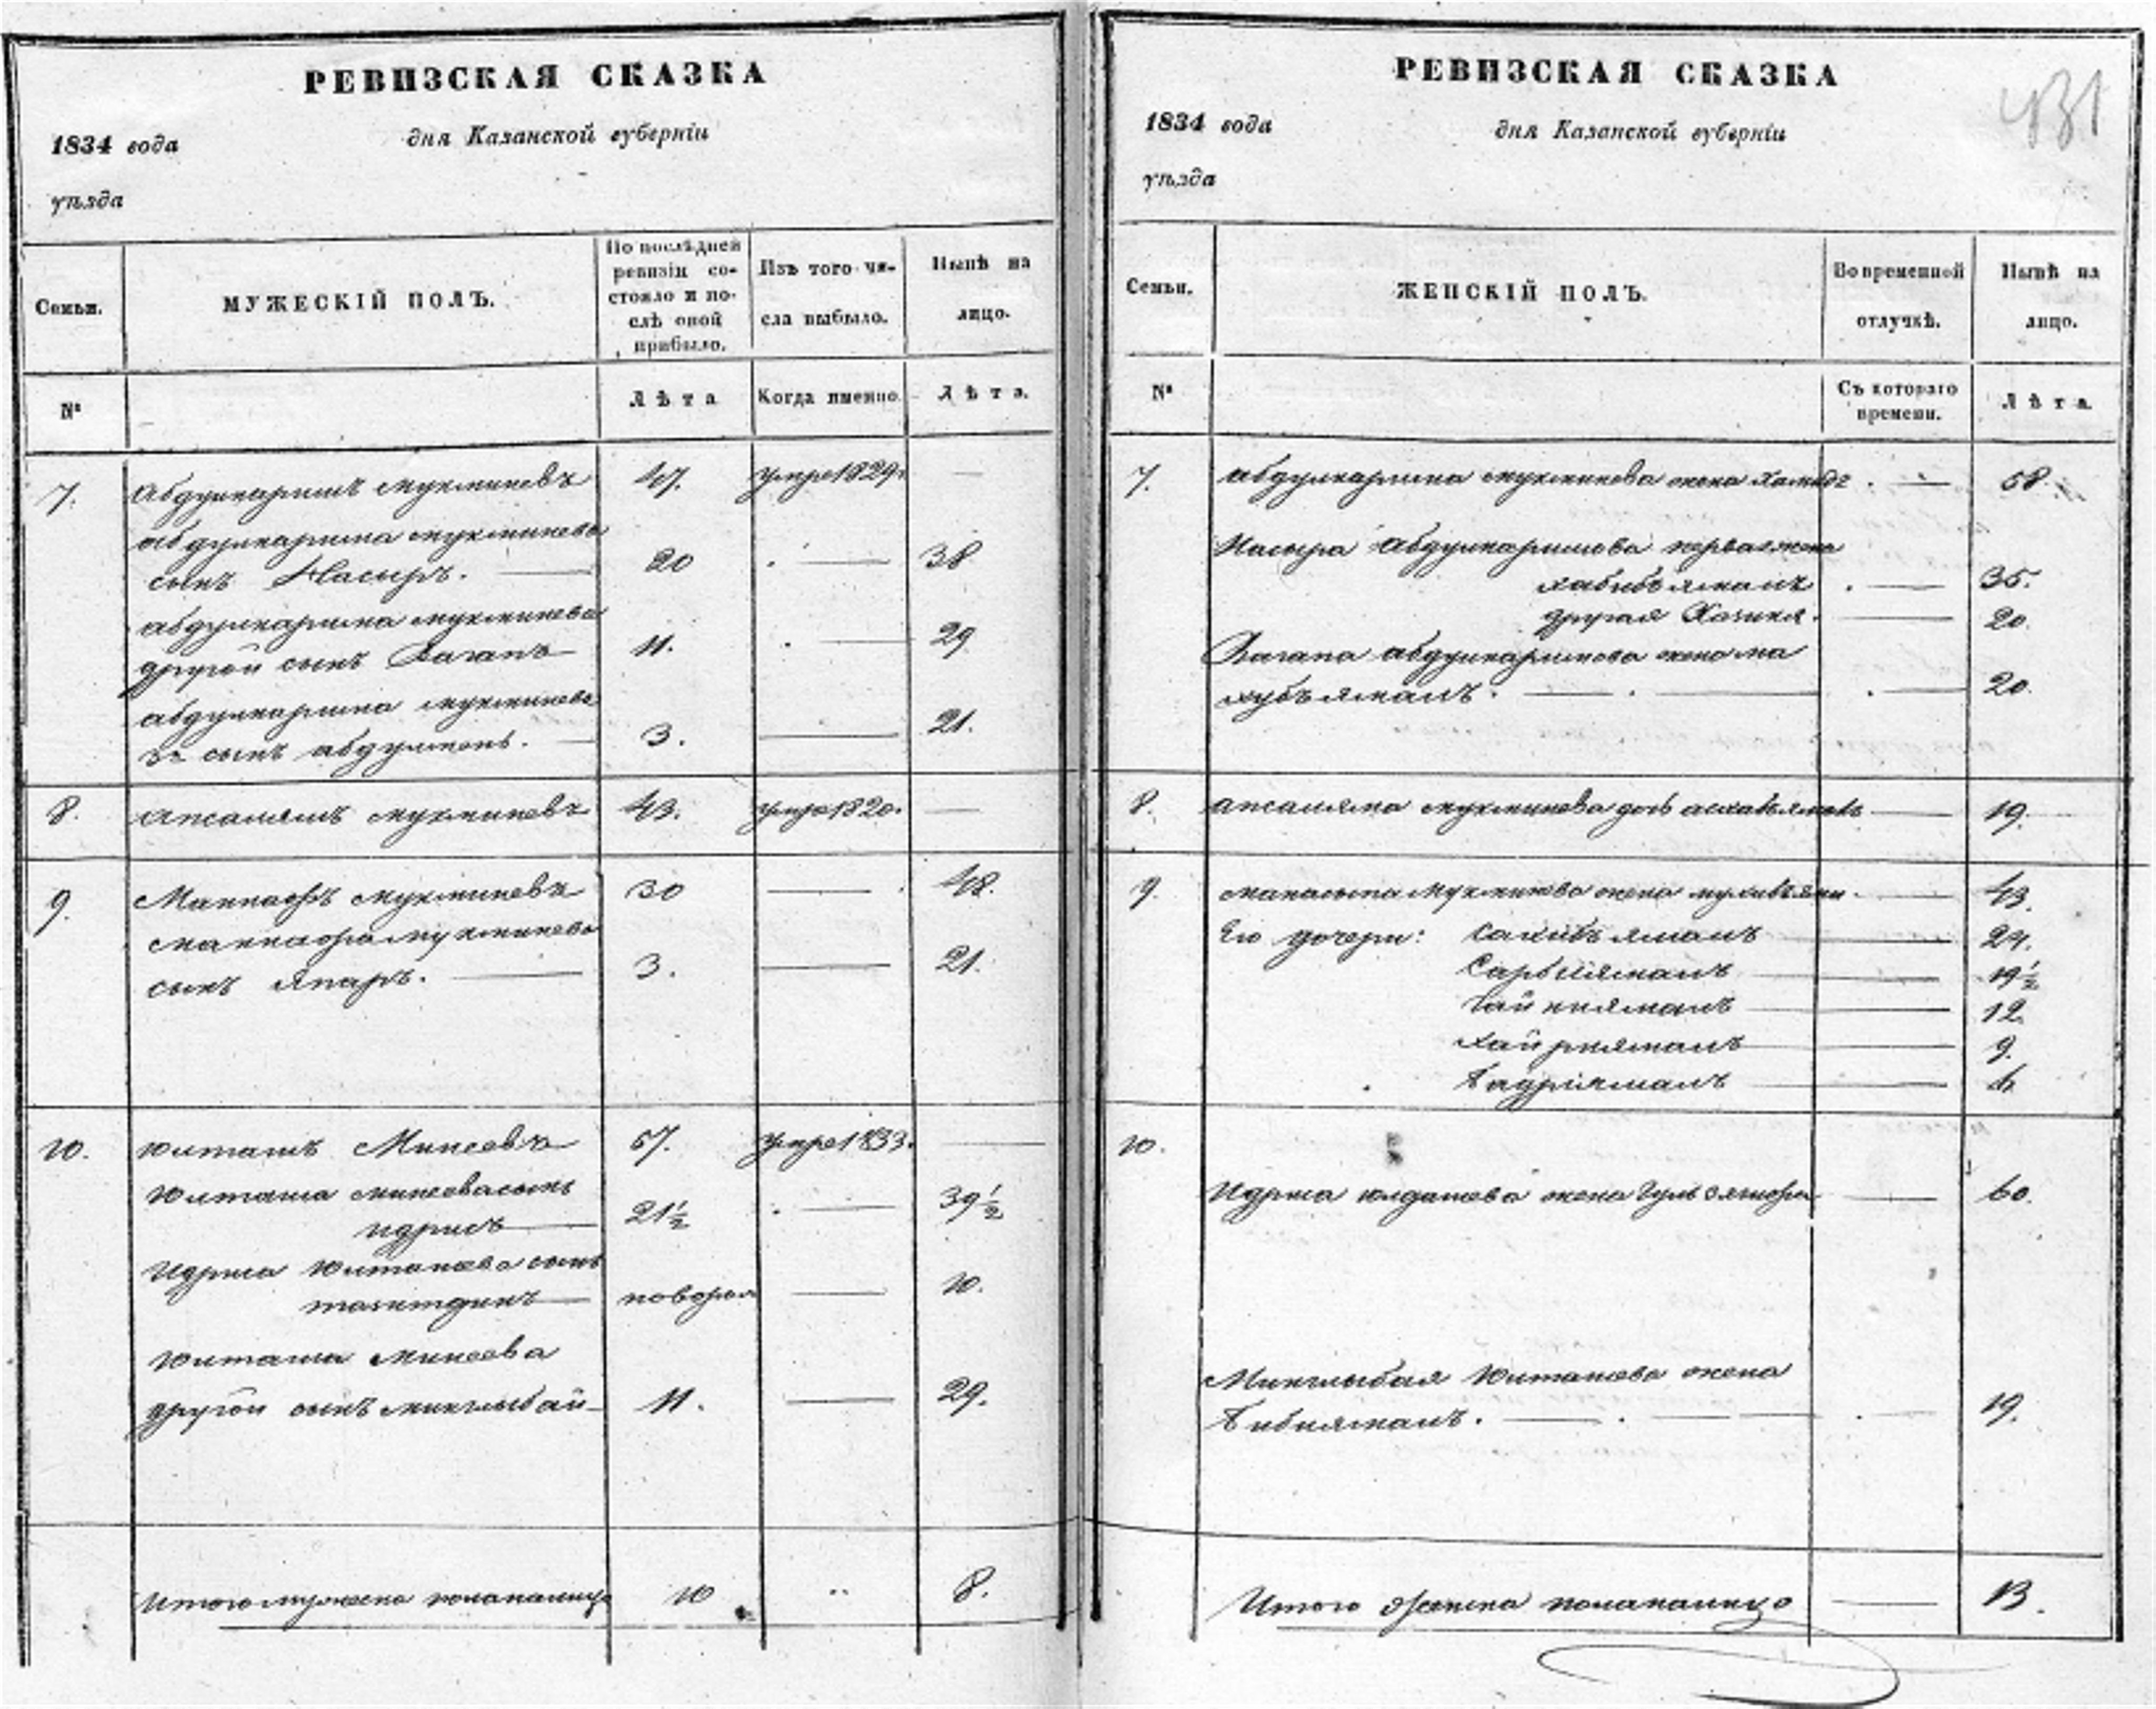 РЕВИЗСКАЯ СКАЗКА
1834 года
дня Казанской губерніи
уѣзда
Семьи.
МУЖЕСКІЙ ПОЛЪ.
По послѣдней
ревизіи со-
стояло и по-
слѣ оной
прибыло.
Изъ того чи-
сла выбыло.
Нынѣ на
лицо.
№
Лѣта
Когда именно.
Лѣта.
7. Абдулкаримъ Мукминевъ 47. умре 1829. —
абдулкарима мукминева
сынъ Насыръ. — 20 — 38
абдулкарима мукминева
другой сынъ Вагапъ 11. — 29
абдулкарима мукминева
3й сынъ абдулменъ. — 3. — 21.
8. Апсалямъ мукминевъ 43. умре 1820. —
9. Маннафъ мукминевъ 30 — 48.
маннафа мукминева
сынъ Япаръ. — 3. — 21.
10. Юлташъ Минеевъ 57. умре 1833. —
Юлташа минеева сынъ
идрисъ — 21½ — 39½
Идриса Юлташева сынъ
тазитдинъ — 10.
Юлташа Минеева
другой сынъ минглыбай 11. — 29.
Итого мужеска пола налицо 10 „ 8.
РЕВИЗСКАЯ СКАЗКА
431
1834 года
дня Казанской губерніи
уѣзда
Семьи.
ЖЕНСКІЙ ПОЛЪ.
Во временной
отлучкѣ.
Нынѣ на
лицо.
№
Съ котораго
времени.
Лѣта.
7. абдулкарима мукминева жена — 58.
Насыра Абдулкаримова первая жена
хабибъямалъ — 35.
другая — 20.
Вагапа абдулкаримова жена ма
хубъямалъ. — 20.
8. апсаляма мукминева дочь — 19.
9. мукминева жена — 43.
Его дочери: Сахибъямалъ — 24.
Сарбиямалъ — 19½
Гайниямалъ — 12.
Хайриямалъ — 9.
Бадріямалъ — 6.
10.
Идриса юлдашева жена — 60.
Минглыбая Юлташева жена
Бибиямалъ. — 19.
Итого женска пола налицо — 13.